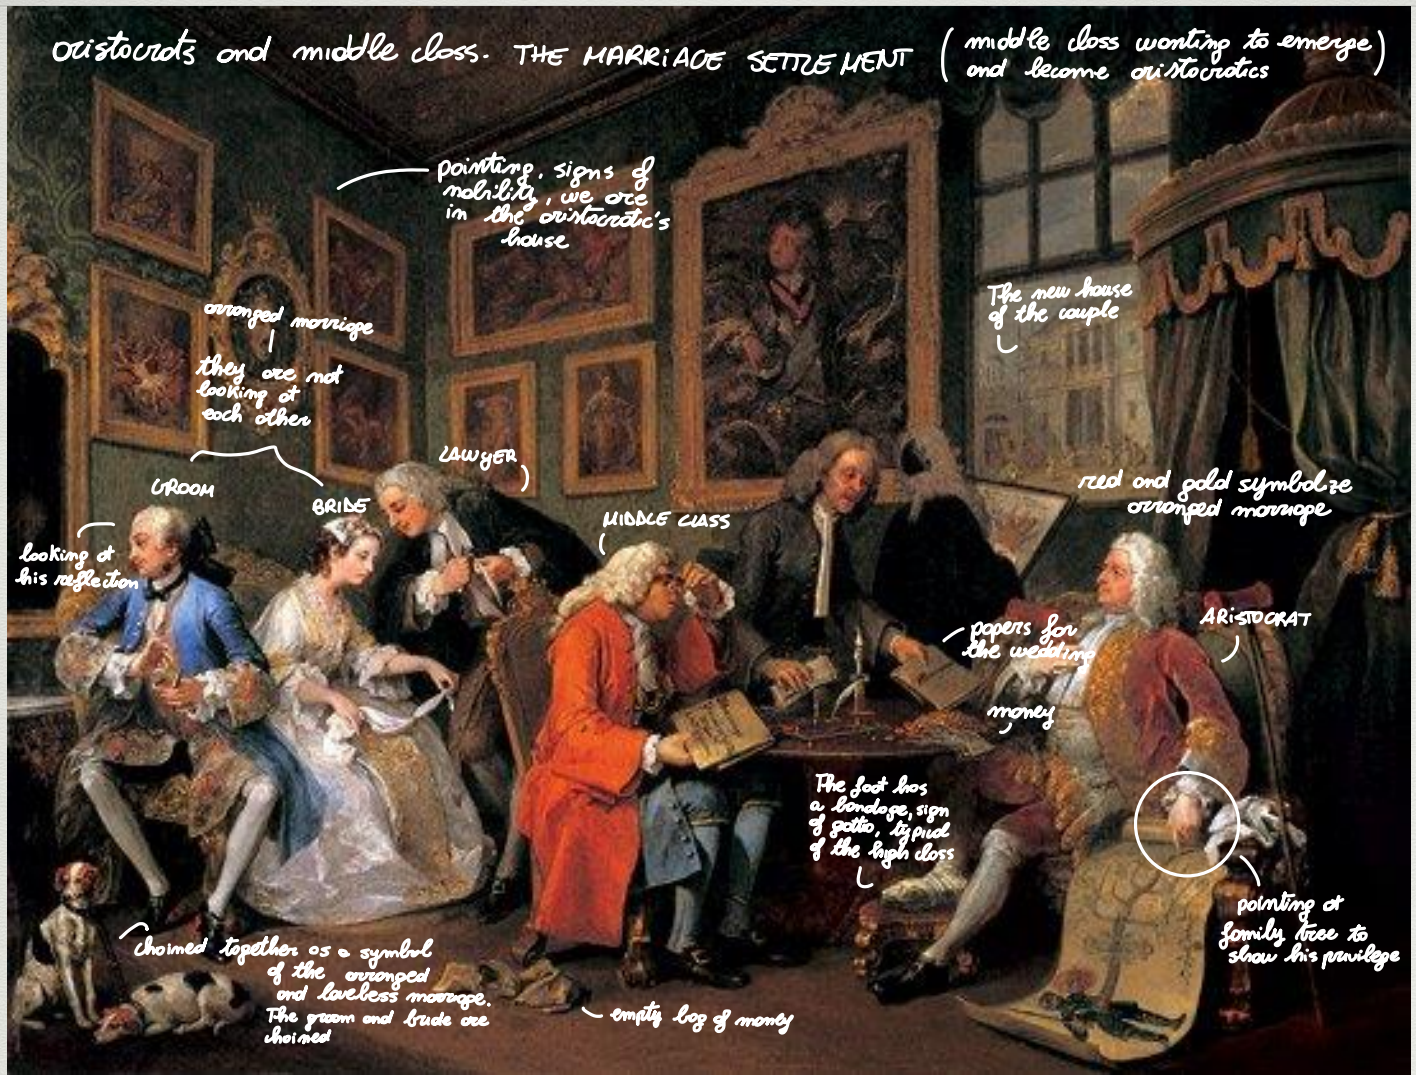 aristocrats and middle class. THE MARRIAGE SETTLEMENT
(middle class wanting to emerge
and become aristocratics)
painting, signs of
nobility, we are
in the aristocratic's
house
The new house
of the couple
arranged marriage
they are not
looking at
each other
GROOM
BRIDE
LAWYER
MIDDLE CLASS
red and gold symbolize
arranged marriage
looking at
his reflection
ARISTOCRAT
papers for
the wedding
money
The foot has
a bandage, sign
of gotta, typical
of the high class
pointing at
family tree to
show his privilege
chained together as a symbol
of the arranged
and loveless marriage.
The groom and bride are
chained
empty bag of money